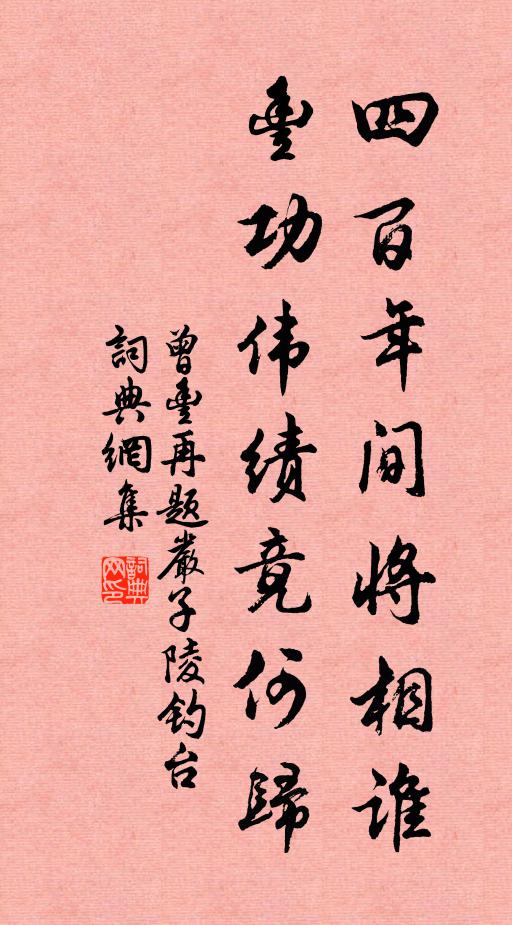 四百年间将相谁
豐功伟绩竟何歸
曾豐再题嚴子陵钓台
詞典網集
詞典网印